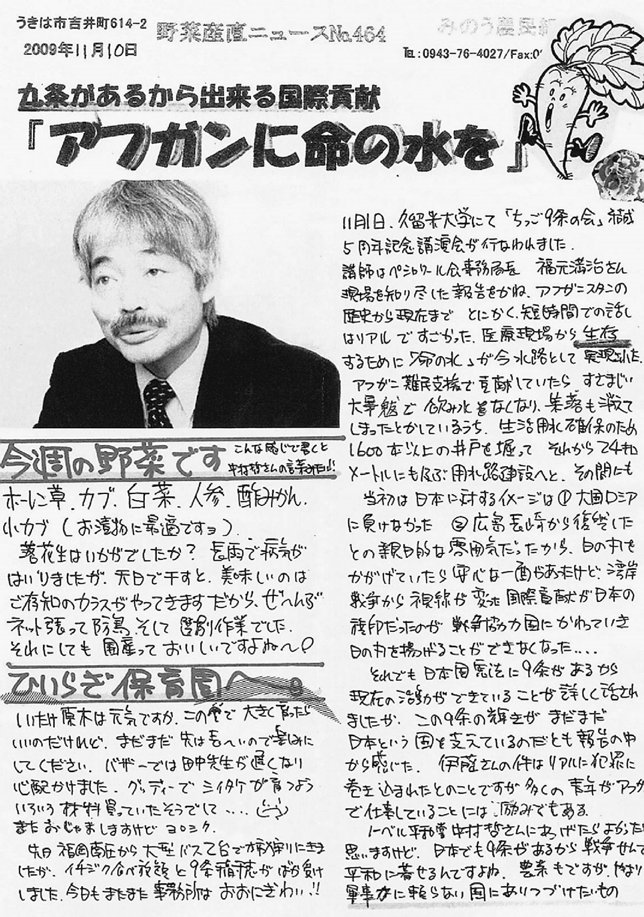 うきは市吉井町614-2
2009年11月10日
野菜産直ニュースNo.464
みのう農民組
TEL:0943-76-4027/Fax:0
九条があるから出来る国際貢献
「アフガンに命の水を」
今週の野菜です
こんな感じで書くと
中村哲さんの言葉みたい!!
ホーレン草、カブ、白菜、人参、酢みかん、
小カブ(お漬物に最適ですョ)
落花生はいかがでしたか? 長雨で病気が
はいりましたが、天日で干すと、美味しいのは
ご存知のカラスがやってきます だから、ぜんぶ
ネット張って防鳥、そして選別作業でした。
それにしても国産っておいしいですよね〜
ひいらぎ保育園へ
しいたけ原木は元気ですか、この冬で大きく育ったら
いいのだけれど、まだまだ先は長〜いので楽しみに
してください。バザーでは田中先生が遅くなり
心配かけました。グッディーでシイタケが育つよう
いろいろ材料買っていたそうで...
またおじゃましますけど ヨロシク。
先日 福岡南庄から大型バス2台で
たが、イチジク
しました。今日もまたまた事務所はおおにぎわい!!
11月1日、久留米大学にて「ちっご9条の会」結成
5周年記念講演会が行なわれました。
講師はペシャワール会事務局長 福元満治さん
現場を知り尽した報告をかね、アフガニスタンの
歴史から現在まで とにかく、短時間での話し
はリアルですごかった。医療現場から生存
するために「命の水」が今水路として実現された。
アフガン難民支援で貢献していたら、すさまじい
大旱魃で飲み水もなくなり、集落も消えて
しまったとかしているうち、生活用水確保のため
1600本以上の井戸を掘って それから24キロ
メートルにも及ぶ用水路建設へと、その間にも
当初は日本に対するイメージは①大国ロシア
に負けなかった ②広島長崎から復興した
との親日的な雰囲気だったから、日の丸を
かかげていたら安心な一面もあったけど、湾岸
戦争から視線が変った 国際貢献が日本の
旗印だったのが 戦争協力国にかわっていき
日の丸を揚げることができなくなった...
それでも日本国憲法に9条があるから
現在の活動ができていることが詳しく話され
ましたが、この9条の輝きがまだまだ
日本という国を支えているのだとも報告の中
から感じた。伊藤さんの件はリアルに犯罪に
巻き込まれたとのことですが多くの青年がアフガ
で仕事していることには励みでもある。
ノーベル平和賞中村哲さんにあげたらよかった
思いますけど、日本でも9条があるから戦争せんで
平和に暮せるんですよね。農業もですが、やはり
軍事力に頼らない国にありつづけたいもの